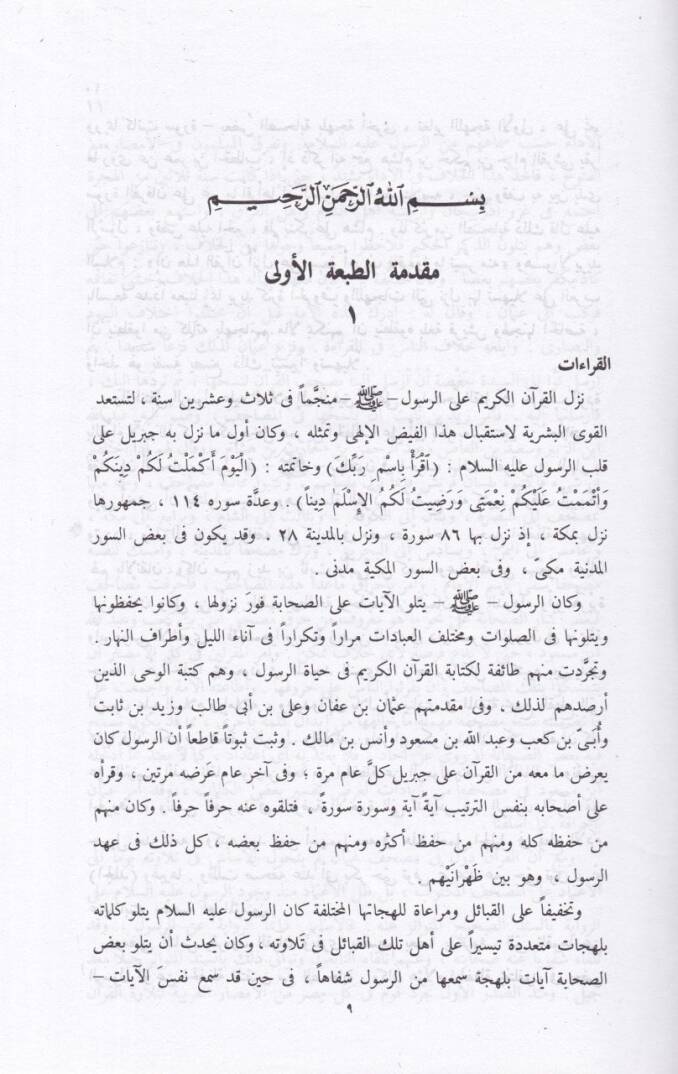 بِسْمِ اللهِ الرَّحْمَنِ الرَّحِيمِ
مقدمة الطبعة الأولى
١
القراءات
نزل القرآن الكريم على الرسول – ﷺ – منجَّماً فى ثلاث وعشرين سنة ، لتستعد
القوى البشرية لاستقبال هذا الفيض الإلهى وتمثله ، وكان أول ما نزل به جبريل على
قلب الرسول عليه السلام : (ٱقْرَأْ بِاسْمِ رَبِّكَ) وخاتمته : (الْيَوْمَ أَكْمَلْتُ لَكُمْ دِينَكُمْ
وَأَتْمَمْتُ عَلَيْكُمْ نِعْمَتِى وَرَضِيتُ لَكُمُ الإِسْلَمَ دِيناً) . وعدَّة سوره ١١٤ ، جمهورها
نزل بمكة ، إذ نزل بها ٨٦ سورة ، ونزل بالمدينة ٢٨ . وقد يكون فى بعض السور
المدنية مكى ، وفى بعض السور المكية مدنى .
وكان الرسول – ﷺ – يتلو الآيات على الصحابة فورَ نزولها ، وكانوا يحفظونها
ويتلونها فى الصلوات ومختلف العبادات مراراً وتكراراً فى آناء الليل وأطراف النهار .
وتجرَّدت منهم طائفة لكتابة القرآن الكريم فى حياة الرسول ، وهم كتبة الوحى الذين
أرصدهم لذلك . وفى مقدمتهم عثمان بن عفان وعلى بن أبى طالب وزيد بن ثابت
وأُبَىّ بن كعب وعبد الله بن مسعود وأنس بن مالك . وثبت ثبوتاً قاطعاً أن الرسول كان
يعرض ما معه من القرآن على جبريل كلَّ عام مرة ؛ وفى آخر عام عَرضه مرتين ، وقرأه
على أصحابه بنفس الترتيب آيةً آية وسورة سورةً ، فتلقوه عنه حرفاً حرفاً . وكان منهم
من حفظه كله ومنهم من حفظ أكثره ومنهم من حفظ بعضه ، كل ذلك فى عهد
الرسول ، وهو بين ظَهْرانَيْهم .
وتخفيفاً على القبائل ومراعاة للهجاتها المختلفة كان الرسول عليه السلام يتلو كلماته
بلهجات متعددة تيسيراً على أهل تلك القبائل فى تَلاوته ، وكان يحدث أن يتلو بعض
الصحابة آيات بلهجة سمعها من الرسول شفاهاً ، فى حين قد سمع نفسَ الآيات –
٩